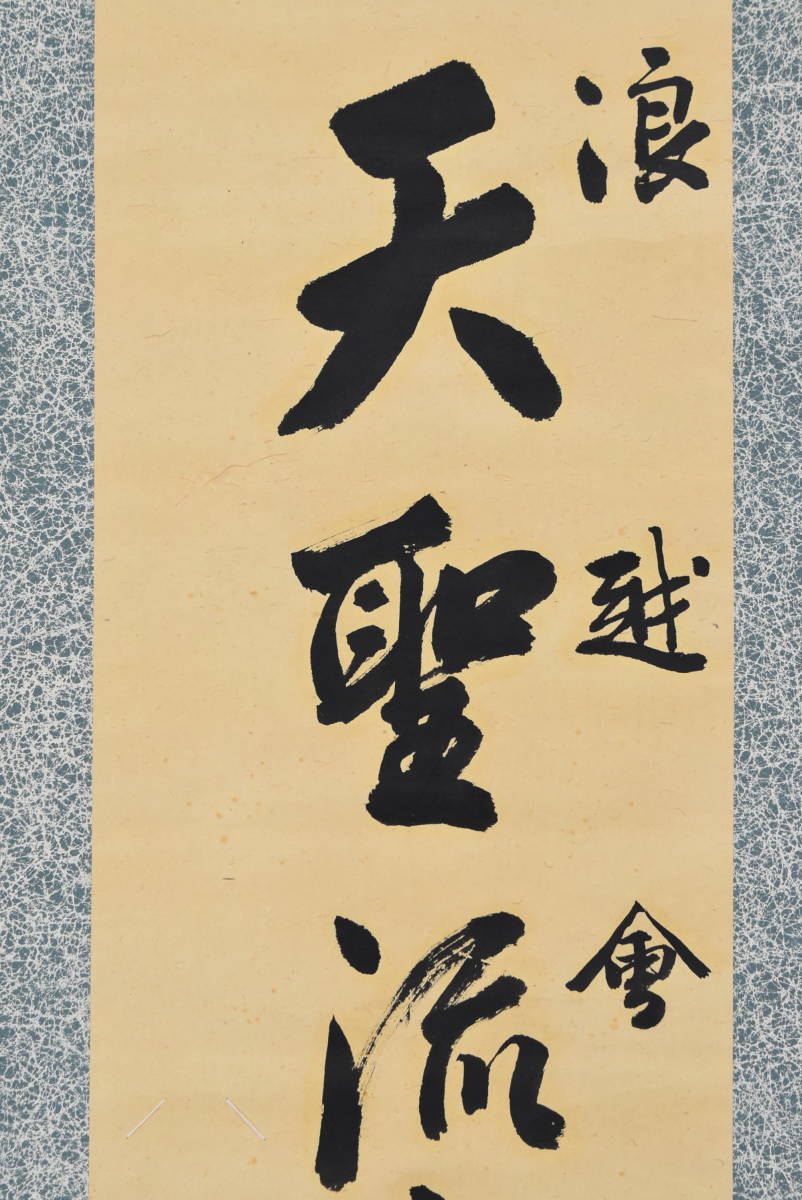 浪越會
天聖流